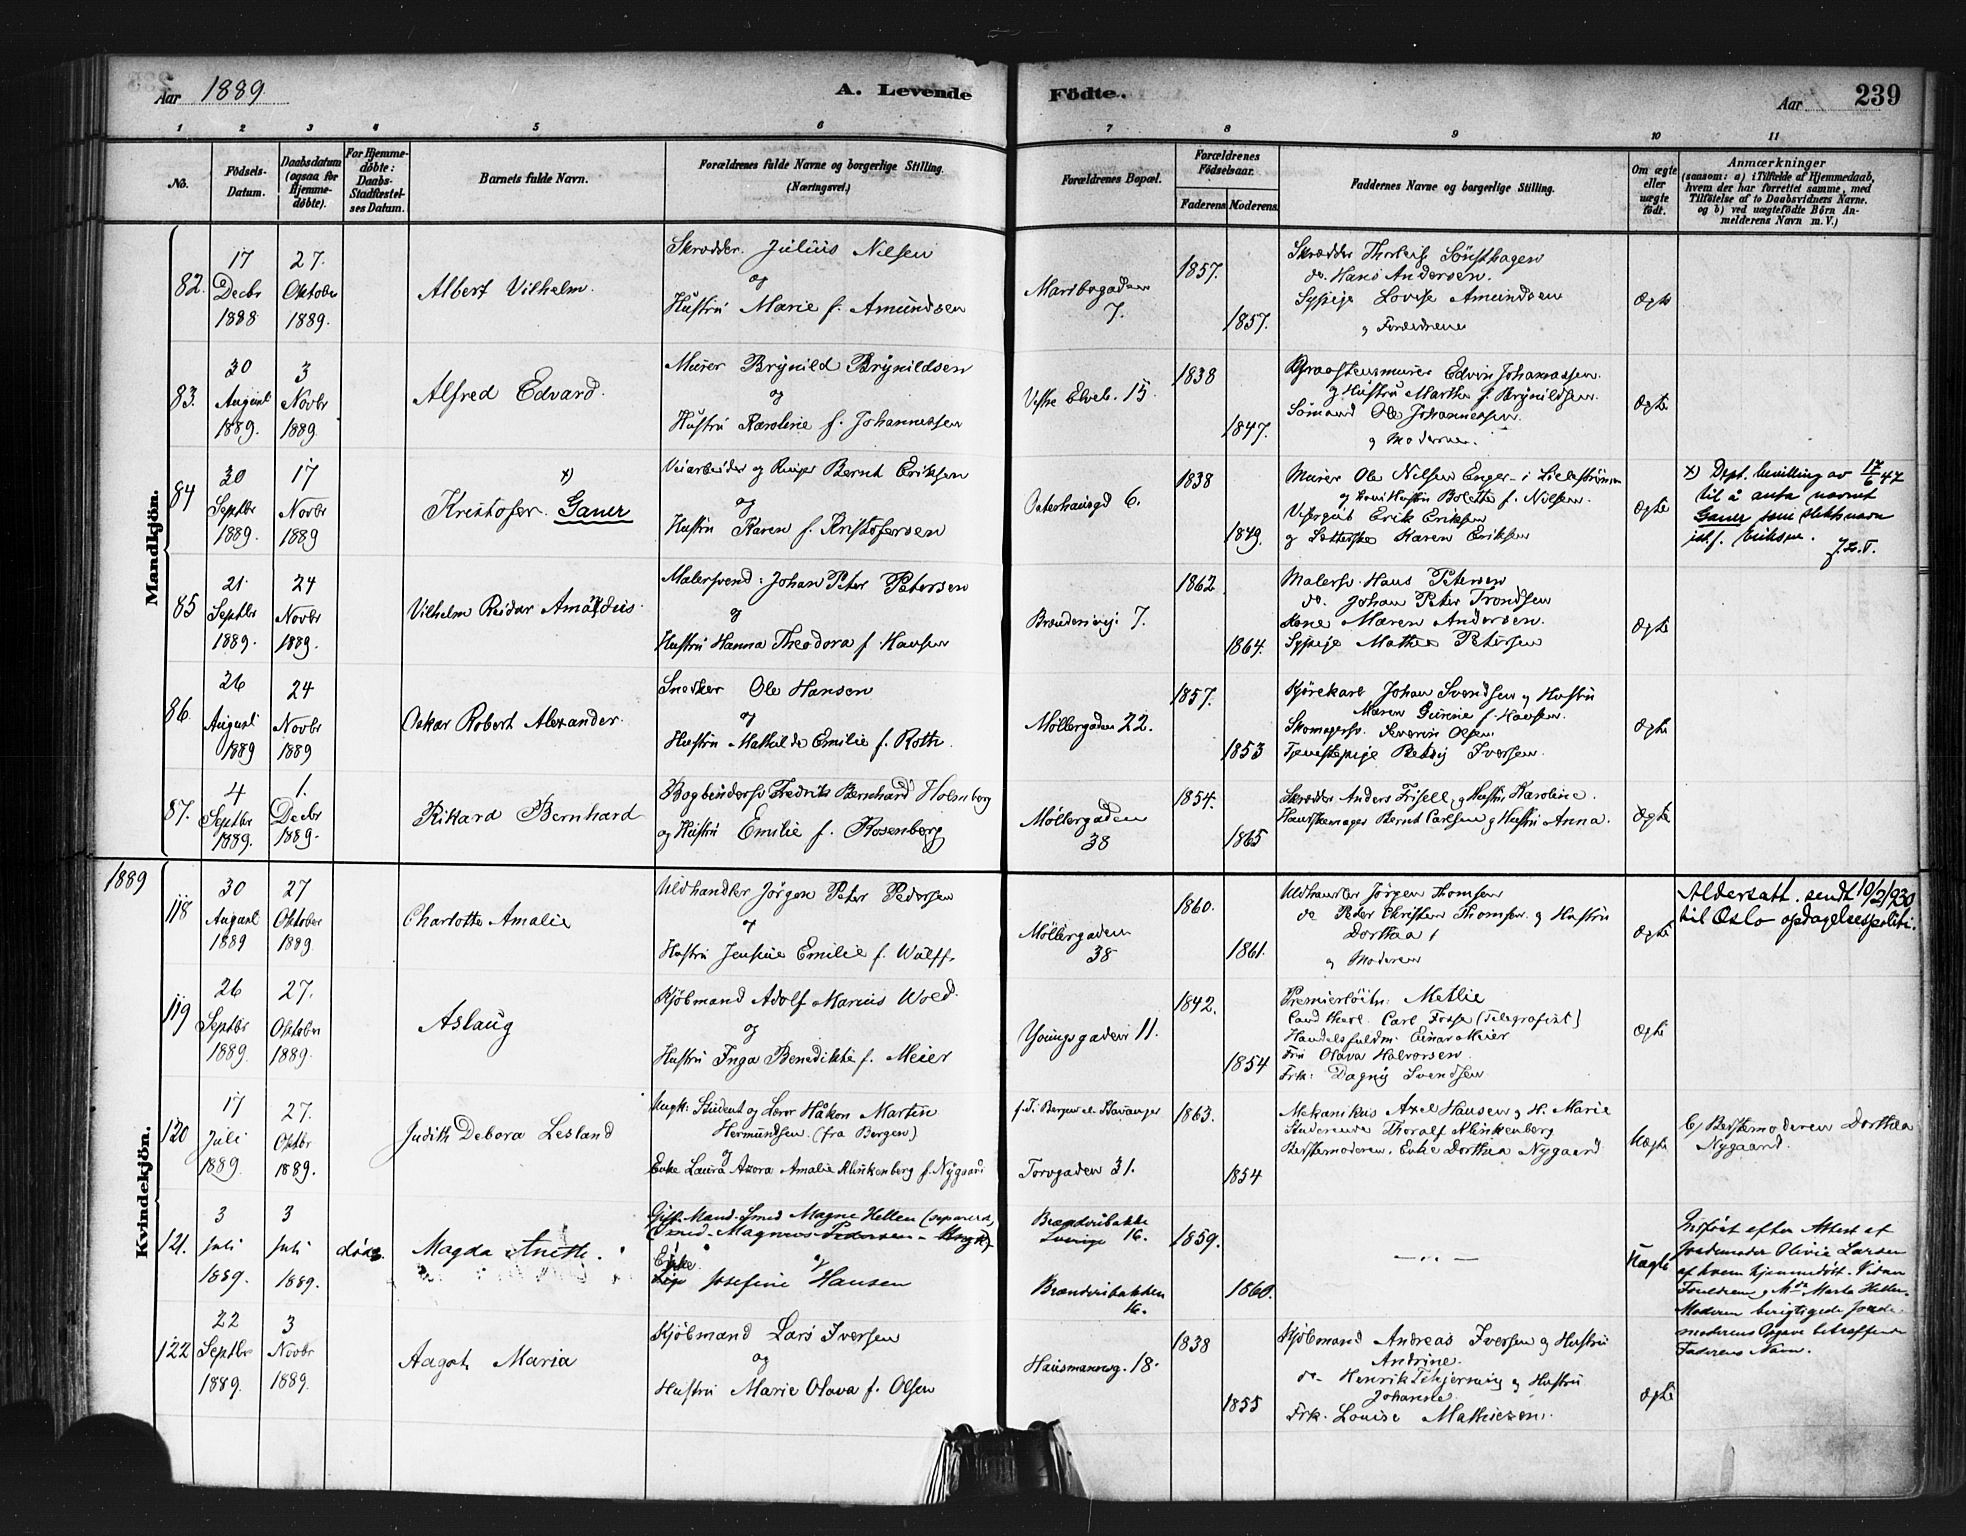 Aar 1889
A. Levende
Födte.
Aar
239
1 2 3 4 5 6 7 8 9 10 11
No.
Födsels-
Datum.
Daabsdatum
(ogsaa for
Hjemme-
døbte).
For Hjemme-
døbte:
Daabs-
Stadfæstel-
ses Datum.
Barnets fulde Navn.
Forældrenes fulde Navne og borgerlige Stilling.
(Næringsvei.)
Forældrenes Bopæl.
Forældrenes
Födselsaar.
Faderens Moderens
Faddernes Navne og borgerlige Stilling.
Om ægte
eller
uægte
födt.
Anmærkninger
(saasom: a) i Tilfælde af Hjemmedaab,
hvem der har forrettet samme, med
Tilföielse af to Daabsvidners Navne.
og b) ved uægtefödte Börn An-
melderens Navn m. V.)
Mandkjön.
82.
17
Decbr
1888
27.
Oktober
1889.
Albert Vilhelm.
Skrædder. Julius Nilsen
og
Hustru Marie f. Amundsen
Maribogaden
7.
1857.
1857.
Skrædder Thorleif Sønsthagen
do. Hans Andersen.
Sypige Lovise Amundsen
og Forældrene
Ægte
83.
30
August
1889.
3
Novbr
1889.
Alfred Edvard.
Murer Brynild Brynildsen
og
Hustru Karoline f. Johannessen
Vestre Elveb. 15.
1838
1847.
Graastensmurer Edvin Johannessen.
og Hustru Martha f. Brynildsen.
Sömand Ole Johannessen.
og Moderen.
Ægte
84
30
Septbr
1889.
17
Novbr
1889
x)
Kristofer. Ganer
Veiarbeider og Bernt Eriksen
og
Hustru Karen f. Kristofersen
Osterhausgd 6.
1838
1849.
Murer Ole Nilsen Enger i Lilleström
og Hustru Bolette f. Nilsen.
Erik Eriksen
og Karen Eriksen
Ægte
x) Dept. bevilling av 17/6 47
til å anta navnet
Ganer som slektsnavn
istf. Eriksen.
85
21.
Septbr
1889.
24
Novbr
1889.
Vilhelm Reidar Amandus.
Malersvend: Johan Peter Petersen
og
Hustru Hanna Theodora f. Hansen
7.
1862
1864.
Malersv. Hans Petersen
do. Johan Peter Trondsen
Kone Maren Andersen.
Sypige Mathea Petersen
Ægte
86.
26
August
1889
24
Novbr
1889
Oskar Robert Alexander.
Snedker Ole Hansen
og
Hustru Mathilde Emilie f. Roth.
Möllergaden 22.
1857.
1853
Kjörekarl Johan Svendsen og Hustru
Maren Gunine f. Hansen.
Skomagersv. Severin Olsen.
Tjenestepige Betsy Iversen.
Ægte
87.
4
Septbr
1889.
1.
Decbr
1889.
Rikkard Bernhard
Bogbindersv Fredrik Bernhard Holmberg
og Hustru Emilie f. Rosenberg
Möllergaden
38
1854.
1865
Skrædder Anders Frisell, og Hustru Karoline.
Handskemager Bernt Carlsen og Hustru Anna.
Ægte
1889
Kvindekjön.
118
30
August
1889
27
Oktober
1889.
Charlotte Amalie
Uldhandler Jörgen Peter Pedersen
og
Hustru Jensine Emilie f. Wulff.
Möllergaden
38
1860.
1861.
Uldhandler Jörgen Thomsen
do Peder Christian Thomsen og Hustru
Dorthea
og Moderen
Ægte
Aldersatt. sendt 10/2 1930
til Oslo opdagelsespoliti.
119
26
Septbr
1889.
27.
Oktober
1889.
Aslaug
Kjöbmand Adolf Marius Wold.
og
Hustru Inga Benedikte f. Meier
Youngsgaden 11.
1842.
1854
Premierlöitn: Metlie
Cand theol. Carl Fosse (Telegrafist)
Handelsfuldm. Einar Meier
Fru Olava Halvorsen.
Frk: Dagny Svendsen
Ægte
120
17
Juli
1889.
27.
Oktbr
1889.
Judith Debora Lesland
Ungk: Student og Lærer Håkon Martin
Hermundsen (fra Bergen)
og
Enke Laura Azora Amalie Klinkenberg f. Nygaard
f. T. Bergen el. Stavanger
Torvgaden 31.
1863.
1854
Mekanikus Axel Hansen og H. Marie
Studerende Thoralf Klinkenberg
Bestemoderen, Enke Dorthea Nygaard
Uægte
b) Bestemoderen Dorthea
Nygaard.
121.
3
Juli
1889.
3
Juli
1889.
død
Magda Anette.
Gift Mand Smed Magne Hellen (separeret)
Smed Magnus Pedersen - Ungk)
og
Enke
Pige Josefine Hansen
Brænderibakke
Sverige 16.
Brænderibakken
16.
1859.
1860.
— „ —
Uægte
Indført efter Attest af
Jordemoder Olivia Larsen
af hvem hjemmedöbt. Vidner
Forældrene og Marta Hellen.
Moderen berigtigede Jorde-
moderens Opgave betræffende
Faderens Navn.
122
22
Septbr
1889.
3
Novbr
1889.
Aagot Maria
Kjöbmand Lars Iversen
og
Hustru Marie Olava f. Olsen
Hausmannsg. 18.
1838
1855
Kjöbmand Andreas Iversen og Hustru
Andrine.
do Henrik og Hustru
Johanne.
Frk. Louise Mathiesen.
Ægte